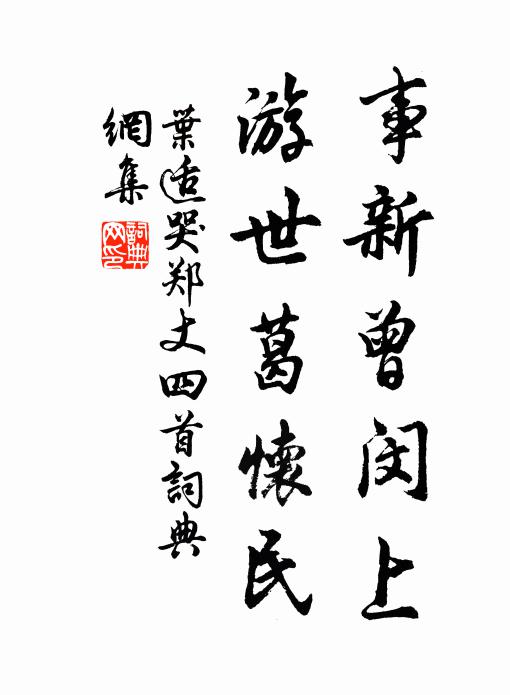 事新曾闵上
游世葛懷民
葉适哭郑丈四首詞典
網集
詞典
网印